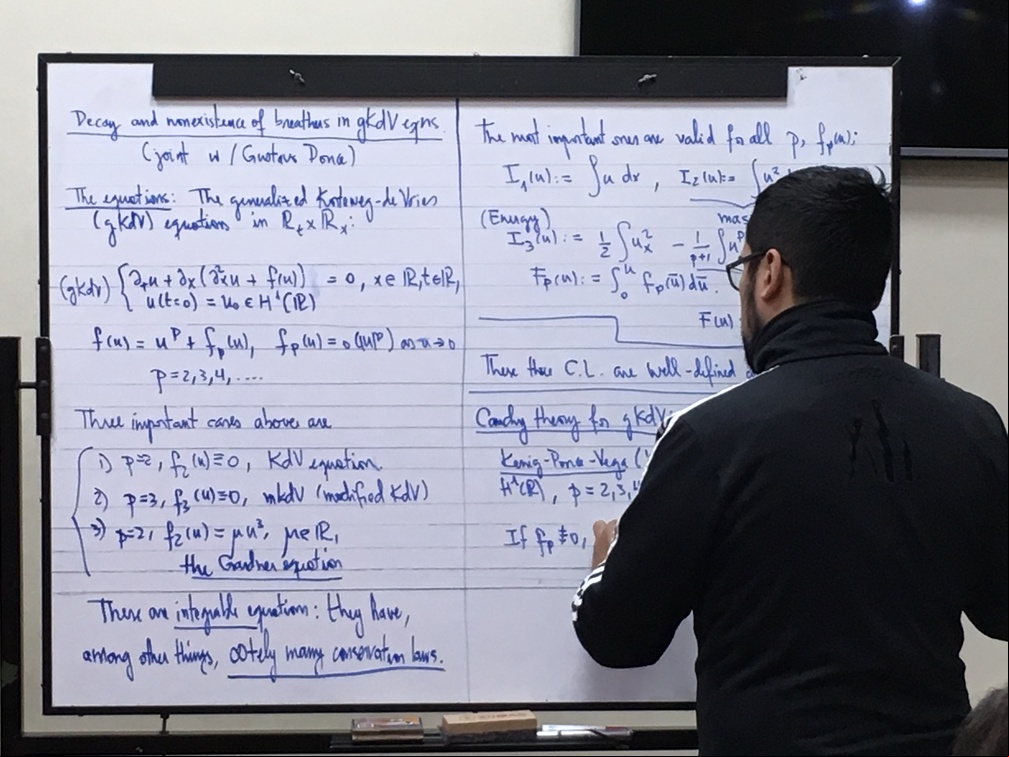 Decay and nonexistence of breathers in gKdV eqns.
(joint w/ Gustavo Ponce)
The equations: The generalized Korteweg-de Vries
(gKdV) equations in ℝₜ×ℝₓ:
(gKdV) { ∂ₜu + ∂ₓ(∂²ₓu + f(u)) = 0, x∈ℝ, t∈ℝ,
u(t=0) = u₀ ∈ H¹(ℝ)
f(u) = uᵖ + fₚ(u), fₚ(u) = o(|u|ᵖ) as u→0
p=2,3,4,....
Three important cases above are
1) p=2, f₂(u)≡0, KdV equation.
2) p=3, f₃(u)≡0, mKdV (modified KdV)
3) p=2, f₂(u)=μu³, μ∈ℝ,
the Gardner equation
These are integrable equations: they have,
among other things, ∞tely many conservation laws.
The most important ones are valid for all p, fₚ(u):
I₁(u):= ∫u dx, I₂(u):= ∫u²
(Energy) mas
I₃(u):= ½∫uₓ² − 1/(p+1) ∫uᵖ
Fₚ(u):= ∫₀ᵘ fₚ(ū)dū.
F(u)
These three C.L. are well-defined
Cauchy theory for gKdV
Kenig-Ponce-Vega (
H¹(ℝ), p=2,3,4
If fₚ≢0,